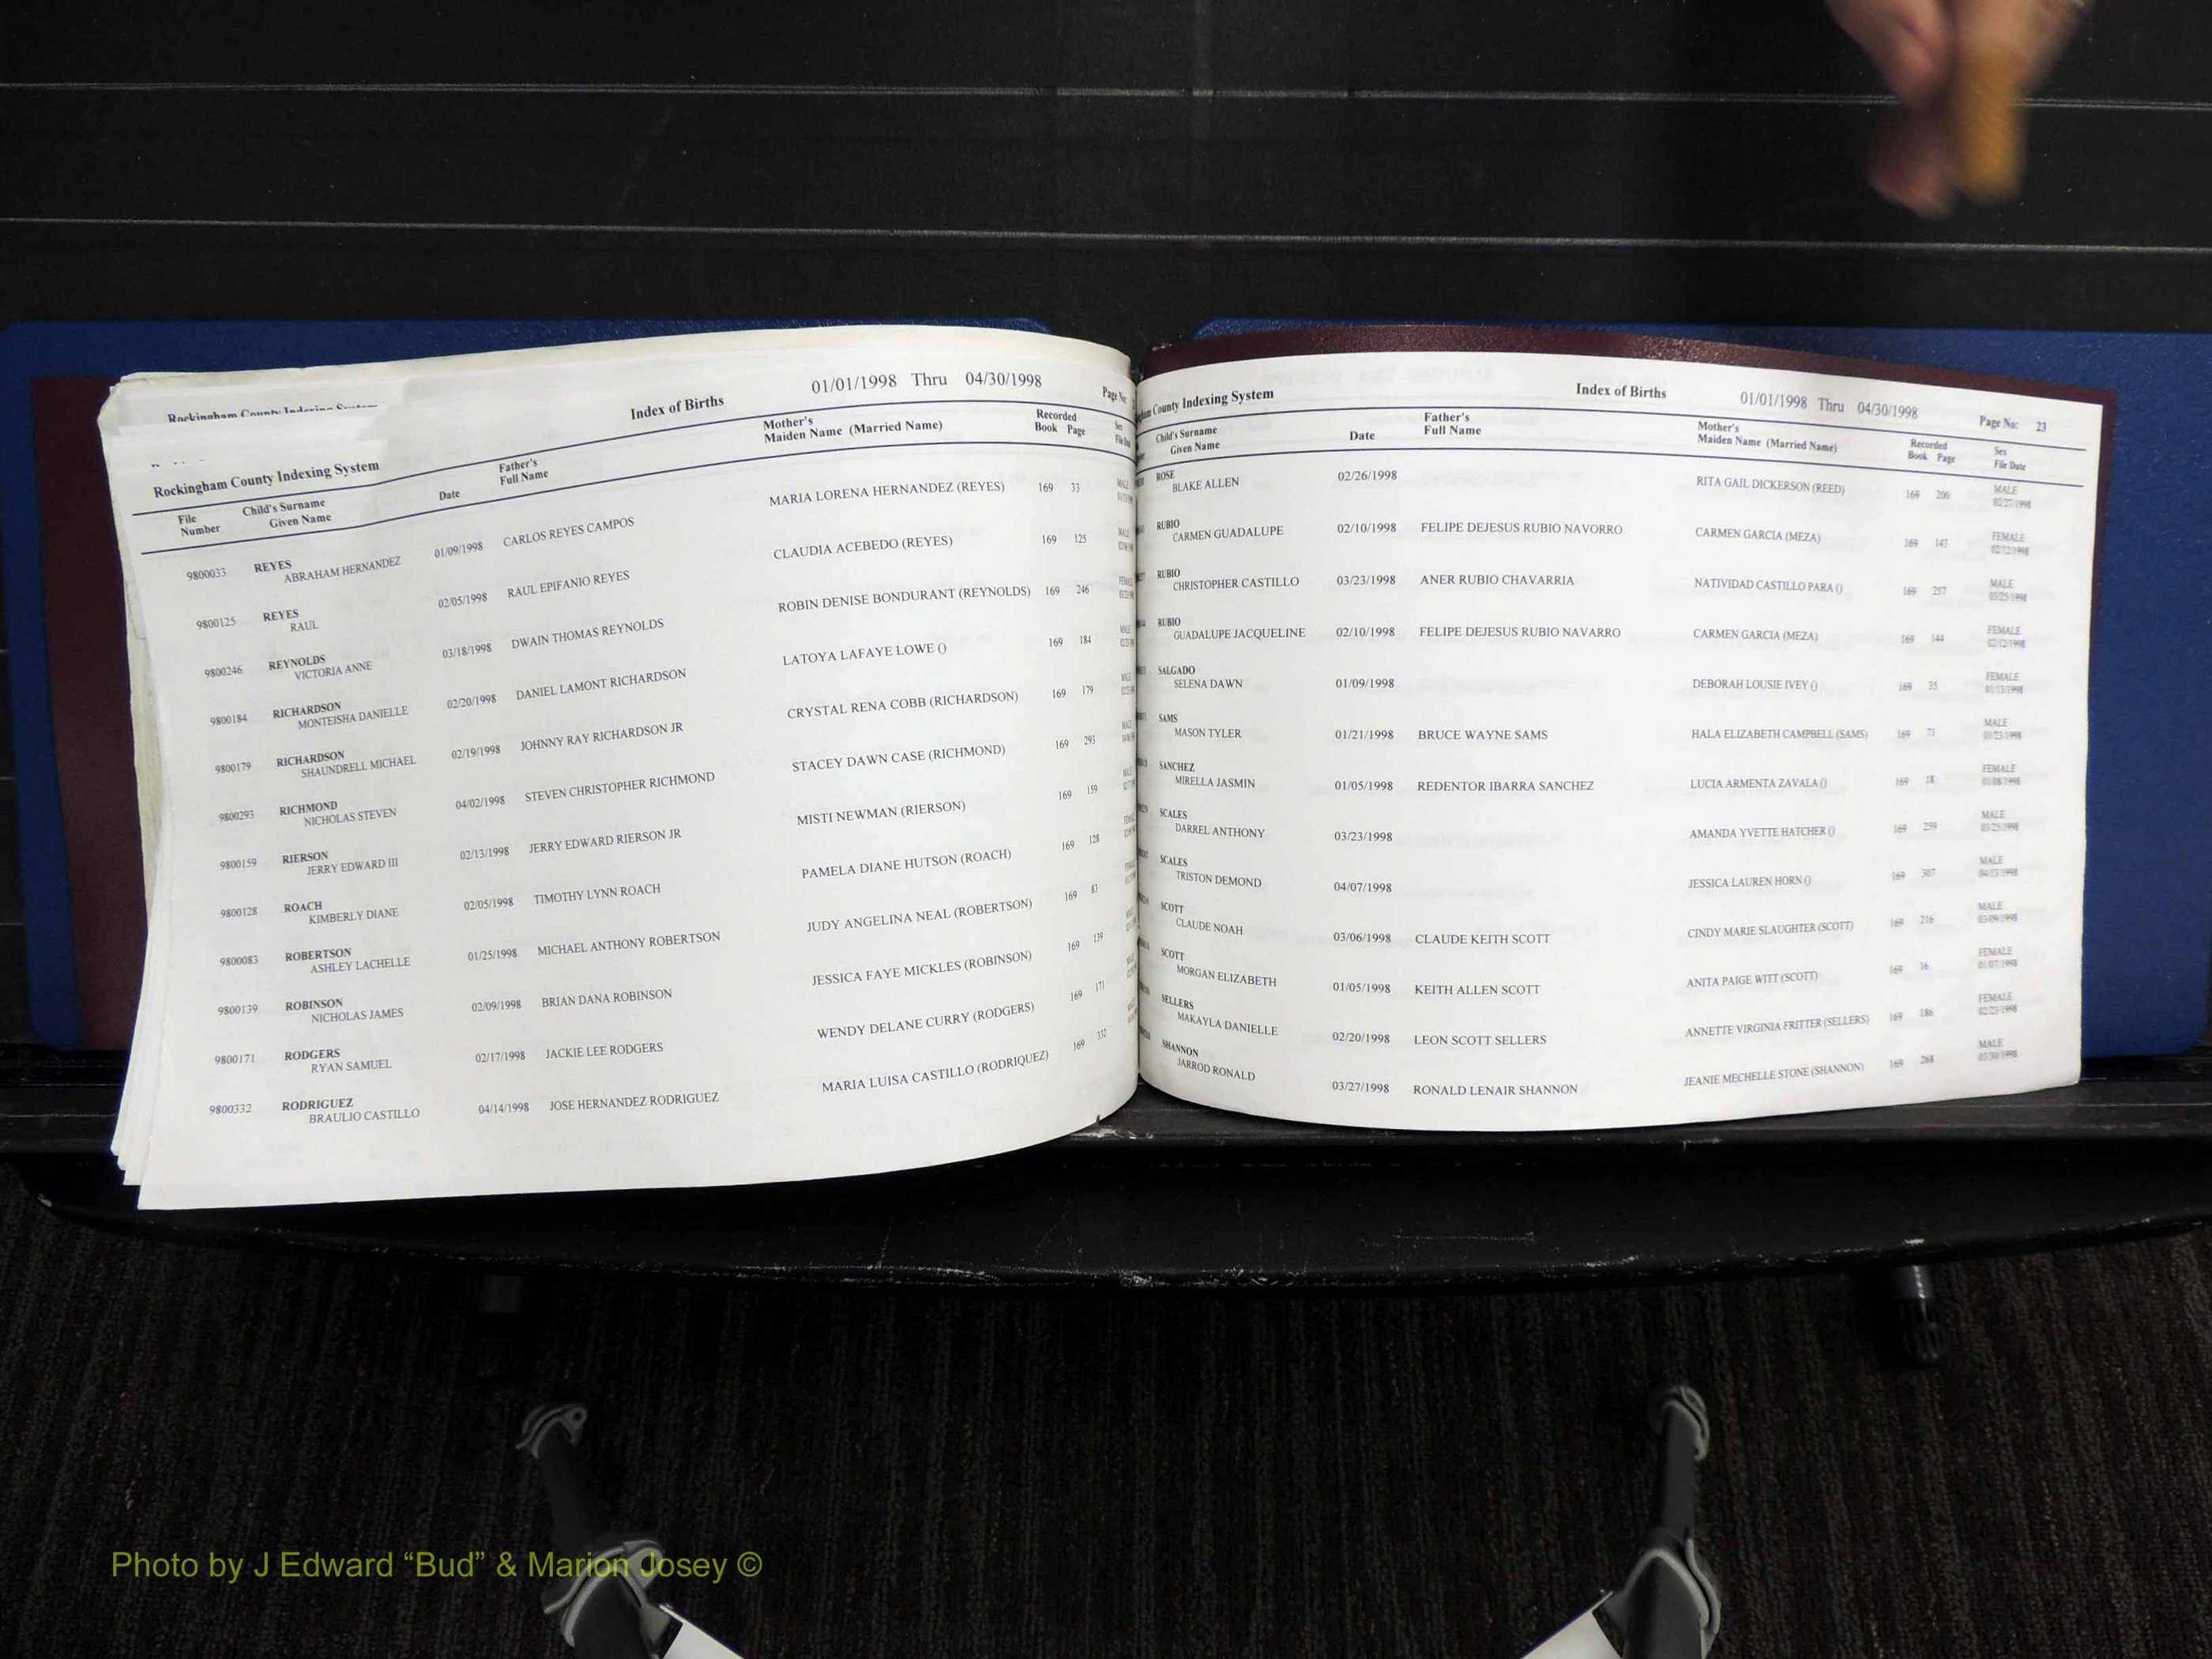 Rockingham County Indexing System
Rockingham County Indexing System
Index of Births
01/01/1998 Thru 04/30/1998
Page No
File Number
Child's Surname Given Name
Date
Father's Full Name
Mother's Maiden Name (Married Name)
Recorded Book Page
Sex File Date
9800033 REYES ABRAHAM HERNANDEZ 01/09/1998 CARLOS REYES CAMPOS MARIA LORENA HERNANDEZ (REYES) 169 33
9800125 REYES RAUL 02/05/1998 RAUL EPIFANIO REYES CLAUDIA ACEBEDO (REYES) 169 125
9800246 REYNOLDS VICTORIA ANNE 03/18/1998 DWAIN THOMAS REYNOLDS ROBIN DENISE BONDURANT (REYNOLDS) 169 246
9800184 RICHARDSON MONTEISHA DANIELLE 02/20/1998 DANIEL LAMONT RICHARDSON LATOYA LAFAYE LOWE () 169 184
9800179 RICHARDSON SHAUNDRELL MICHAEL 02/19/1998 JOHNNY RAY RICHARDSON JR CRYSTAL RENA COBB (RICHARDSON) 169 179
9800293 RICHMOND NICHOLAS STEVEN 04/02/1998 STEVEN CHRISTOPHER RICHMOND STACEY DAWN CASE (RICHMOND) 169 293
9800159 RIERSON JERRY EDWARD III 02/13/1998 JERRY EDWARD RIERSON JR MISTI NEWMAN (RIERSON) 169 159
9800128 ROACH KIMBERLY DIANE 02/05/1998 TIMOTHY LYNN ROACH PAMELA DIANE HUTSON (ROACH) 169 128
9800083 ROBERTSON ASHLEY LACHELLE 01/25/1998 MICHAEL ANTHONY ROBERTSON JUDY ANGELINA NEAL (ROBERTSON) 169 83
9800139 ROBINSON NICHOLAS JAMES 02/09/1998 BRIAN DANA ROBINSON JESSICA FAYE MICKLES (ROBINSON) 169 139
9800171 RODGERS RYAN SAMUEL 02/17/1998 JACKIE LEE RODGERS WENDY DELANE CURRY (RODGERS) 169 171
9800332 RODRIGUEZ BRAULIO CASTILLO 04/14/1998 JOSE HERNANDEZ RODRIGUEZ MARIA LUISA CASTILLO (RODRIQUEZ) 169 332
County Indexing System
Index of Births
01/01/1998 Thru 04/30/1998
Page No: 23
Child's Surname Given Name
Date
Father's Full Name
Mother's Maiden Name (Married Name)
Recorded Book Page
Sex File Date
ROSE BLAKE ALLEN 02/26/1998 RITA GAIL DICKERSON (REED) 169 200 MALE 02/27/1998
RUBIO CARMEN GUADALUPE 02/10/1998 FELIPE DEJESUS RUBIO NAVORRO CARMEN GARCIA (MEZA) 169 143 FEMALE 02/12/1998
RUBIO CHRISTOPHER CASTILLO 03/23/1998 ANER RUBIO CHAVARRIA NATIVIDAD CASTILLO PARA () 169 257 MALE 03/25/1998
RUBIO GUADALUPE JACQUELINE 02/10/1998 FELIPE DEJESUS RUBIO NAVARRO CARMEN GARCIA (MEZA) 169 144 FEMALE 02/12/1998
SALGADO SELENA DAWN 01/09/1998 DEBORAH LOUSIE IVEY () 169 35 FEMALE 01/13/1998
SAMS MASON TYLER 01/21/1998 BRUCE WAYNE SAMS HALA ELIZABETH CAMPBELL (SAMS) 169 71 MALE 01/23/1998
SANCHEZ MIRELLA JASMIN 01/05/1998 REDENTOR IBARRA SANCHEZ LUCIA ARMENTA ZAVALA () 169 18 FEMALE 01/08/1998
SCALES DARREL ANTHONY 03/23/1998 AMANDA YVETTE HATCHER () 169 259 MALE 03/25/1998
SCALES TRISTON DEMOND 04/07/1998 JESSICA LAUREN HORN () 169 307 MALE 04/13/1998
SCOTT CLAUDE NOAH 03/06/1998 CLAUDE KEITH SCOTT CINDY MARIE SLAUGHTER (SCOTT) 169 216 MALE 03/09/1998
SCOTT MORGAN ELIZABETH 01/05/1998 KEITH ALLEN SCOTT ANITA PAIGE WITT (SCOTT) 169 16 FEMALE 01/07/1998
SELLERS MAKAYLA DANIELLE 02/20/1998 LEON SCOTT SELLERS ANNETTE VIRGINIA FRITTER (SELLERS) 169 186 FEMALE 02/23/1998
SHANNON JARROD RONALD 03/27/1998 RONALD LENAIR SHANNON JEANIE MECHELLE STONE (SHANNON) 169 268 MALE 03/30/1998
Photo by J Edward “Bud” & Marion Josey ©